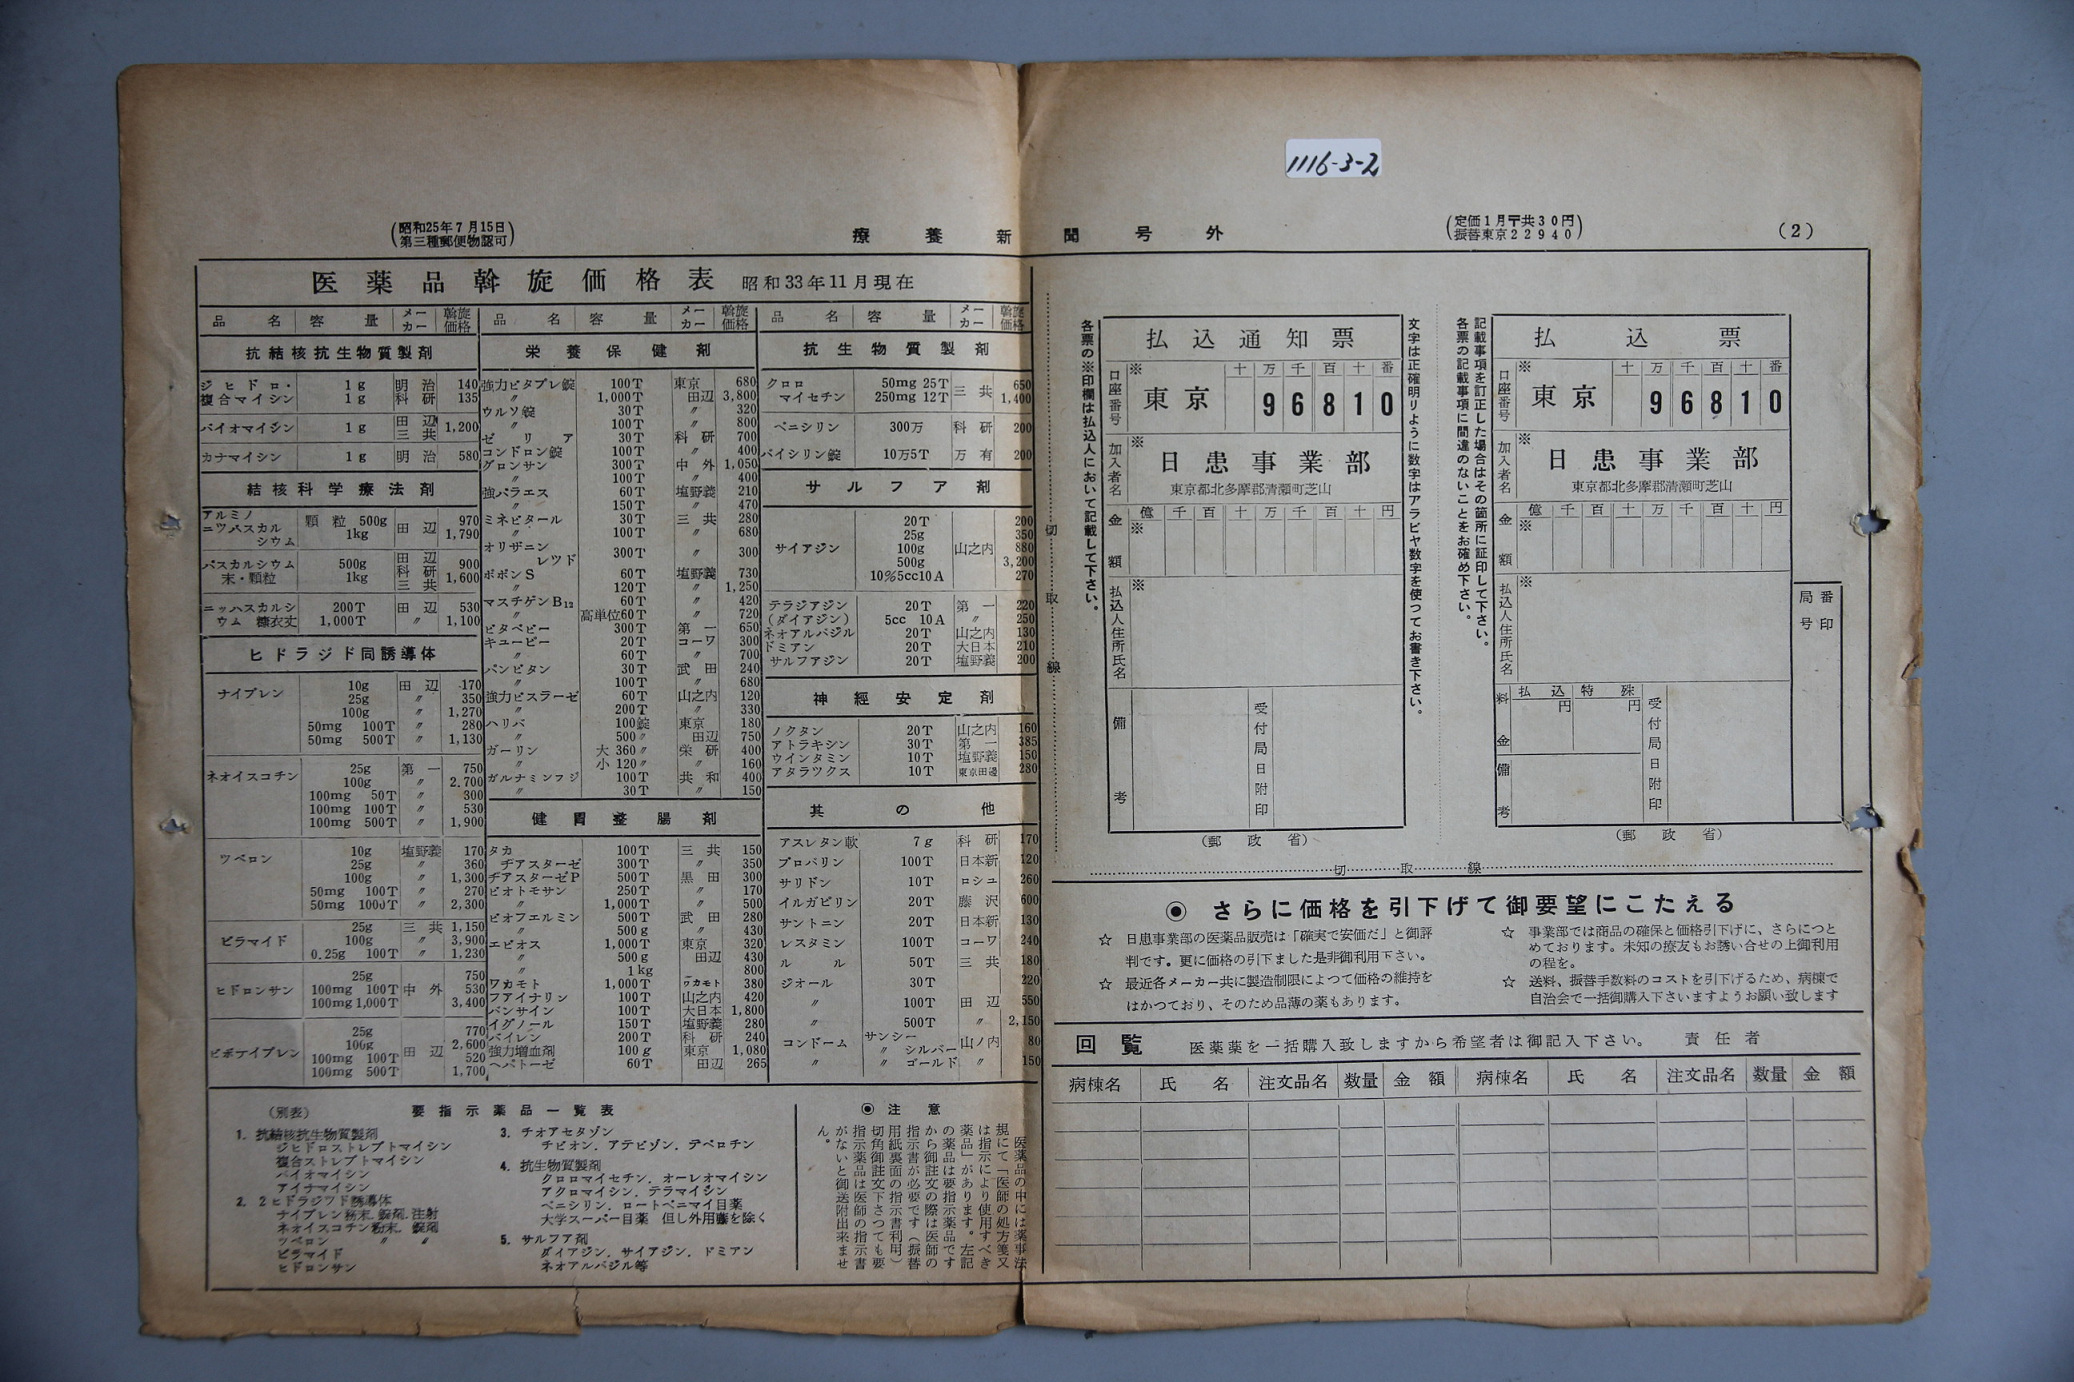 1116-3-2
(昭和25年7月15日
第三種郵便物認可)
療養新聞号外
(定価1月〒共30円
振替東京22940)
(2)
医薬品斡旋価格表 昭和33年11月現在
品名 容量 メーカー 斡旋価格
抗結核抗生物質製剤
ジヒドロ・ 1g 明治 140
複合マイシン 1g 科研 135
バイオマイシン 1g 田辺 三共 1,200
カナマイシン 1g 明治 580
結核科学療法剤
アルミノ
ニツパスカル
シウム 顆粒 500g 田辺 970
1kg 1,790
パスカルシウム 500g 田辺 900
末・顆粒 1kg 科研 三共 1,600
ニッパスカルシ 200T 田辺 530
ウム 糖衣丈 1,000T 〃 1,100
ヒドラジド同誘導体
ナイブレン 10g 田辺 170
25g 〃 350
100g 〃 1,270
50mg 100T 〃 280
50mg 500T 〃 1,130
ネオイスコチン 25g 第一 750
100g 〃 2,700
100mg 50T 〃 300
100mg 100T 〃 530
100mg 500T 〃 1,900
ツベロン 10g 塩野義 170
25g 〃 360
100g 〃 1,300
50mg 100T 〃 270
50mg 1000T 〃 2,300
ピラマイド 25g 三共 1,150
100g 〃 3,900
0.25g 100T 〃 1,230
ヒドロンサン 25g 中外 750
100mg 100T 530
100mg 1,000T 3,400
ピボナイブレン 25g 田辺 770
100g 2,600
100mg 100T 520
100mg 500T 1,700
品名 容量 メーカー 斡旋価格
栄養保健剤
強力ビタプレ錠 100T 東京 680
〃 1,000T 田辺 3,800
ウルソ錠 30T 〃 320
〃 100T 〃 800
ゼリア 30T 科研 700
コンドロン錠 100T 〃 400
グロンサン 300T 中外 1,050
〃 100T 〃 400
強パラエス 60T 塩野義 210
〃 150T 〃 470
ミネビタール 30T 三共 280
〃 100T 〃 680
オリザニン
レツド 300T 〃 300
ポポンS 60T 塩野義 730
〃 120T 〃 1,250
マスチゲンB12 60T 〃 420
〃 高単位60T 〃 720
ビタベビー 300T 第一 650
キユーピー 20T コーワ 300
〃 60T 〃 700
パンビタン 30T 武田 240
〃 100T 〃 680
強力ビスラーゼ 60T 山之内 120
〃 200T 〃 330
ハリバ 100錠 東京 180
〃 500〃 田辺 750
ガーリン 大 360〃 栄研 400
〃 小 120〃 〃 160
ガルナミンフジ 100T 共和 400
〃 30T 〃 150
健胃整腸剤
タカ 100T 三共 150
ヂアスターゼ 300T 〃 350
ヂアスターゼP 500T 黒田 300
ビオトモサン 250T 〃 170
〃 1,000T 〃 500
ビオフエルミン 500T 武田 280
〃 500g 〃 430
エビオス 1,000T 東京 320
〃 500g 田辺 430
〃 1kg 800
ワカモト 1,000T ワカモト 380
フアイナリン 100T 山之内 420
バンサイン 100T 大日本 1,800
イグノール 150T 塩野義 280
パイレン 200T 科研 240
強力増血剤 100g 東京 1,080
ヘパトーゼ 60T 田辺 265
品名 容量 メーカー 斡旋価格
抗生物質製剤
クロロ 50mg 25T 三共 650
マイセチン 250mg 12T 1,400
ペニシリン 300万 科研 200
バイシリン錠 10万5T 万有 200
サルフア剤
サイアジン 20T 山之内 200
25g 350
100g 880
500g 3,200
10%5cc10A 270
テラジアジン 20T 第一 220
(ダイアジン) 5cc 10A 〃 250
ネオアルバジル 20T 山之内 130
ドミアン 20T 大日本 210
サルフアジン 20T 塩野義 200
神経安定剤
ノクタン 20T 山之内 160
アトラキシン 30T 第一 385
ウインタミン 10T 塩野義 150
アタラックス 10T 東京田邊 280
其の他
アスレタン軟 7g 科研 170
プロバリン 100T 日本新 120
サリドン 10T ロシユ 260
イルガピリン 20T 藤沢 600
サントニン 20T 日本新 130
レスタミン 100T コーワ 240
ルル 50T 三共 180
ジオール 30T 220
〃 100T 田辺 550
〃 500T 〃 2,150
コンドーム サンシー 山ノ内 80
〃 〃 シルバー
〃 〃 ゴールド 〃 150
(別表) 要指示薬品一覧表
1. 抗結核抗生物質製剤
ジヒドロストレプトマイシン
複合ストレプトマイシン
バイオマイシン
アイナマイシン
2. 2ヒドラジツド誘導体
ナイブレン粉末. 錠剤. 注射
ネオイスコチン粉末. 錠剤
ツベロン 〃 〃
ピラマイド
ヒドロンサン
3. チオアセタゾン
チビオン. アテビゾン. テベロチン
4. 抗生物質製剤
クロロマイセチン. オーレオマイシン
アクロマイシン. テラマイシン
ペニシリン. ロートペニマイ目薬
大学スーパー目薬 但し外用藤を除く
5. サルフア剤
ダイアジン. サイアジン. ドミアン
ネオアルバジル等
◉注意
医薬品の中には薬事法
規にて「医師の処方箋又
は指示により使用すべき
薬品」があります。左記
の薬品は要指示薬品です
から御註文の際は医師の
指示書が必要です(振替
用紙裏面の指示書利用)
切角御註文下さつても要
指示薬品は医師の指示書
がないと御送附出来ませ
ん。
切取線
各票の※印欄は払込人において記載して下さい。
払込通知票
口座番号 ※ 東京 十万千百十番 96810
加入者名 ※ 日患事業部
東京都北多摩郡清瀬町芝山
金額 ※ 億千百十万千百十円
払込人住所氏名 ※
備考
受付局日附印
(郵政省)
文字は正確明りように数字はアラビヤ数字を使つてお書き下さい。
記載事項を訂正した場合はその箇所に証印して下さい。
各票の記載事項に間違のないことをお確め下さい。
払込票
口座番号 ※ 東京 十万千百十番 96810
加入者名 ※ 日患事業部
東京都北多摩郡清瀬町芝山
金額 ※ 億千百十万千百十円
払込人住所氏名 ※
料金 払込 円 特殊 円
備考
受付局日附印
局番号印
(郵政省)
切取線
◉ さらに価格を引下げて御要望にこたえる
☆ 日患事業部の医薬品販売は「確実で安価だ」と御評
判です。更に価格の引下ました是非御利用下さい。
☆ 最近各メーカー共に製造制限によつて価格の維持を
はかつており、そのため品薄の薬もあります。
☆ 事業部では商品の確保と価格引下げに、さらにつと
めております。未知の療友もお誘い合せの上御利用
の程を。
☆ 送料、振替手数料のコストを引下げるため、病棟で
自治会で一括御購入下さいますようお願い致します
回覧 医薬薬を一括購入致しますから希望者は御記入下さい。 責任者
病棟名 氏名 注文品名 数量 金額 病棟名 氏名 注文品名 数量 金額